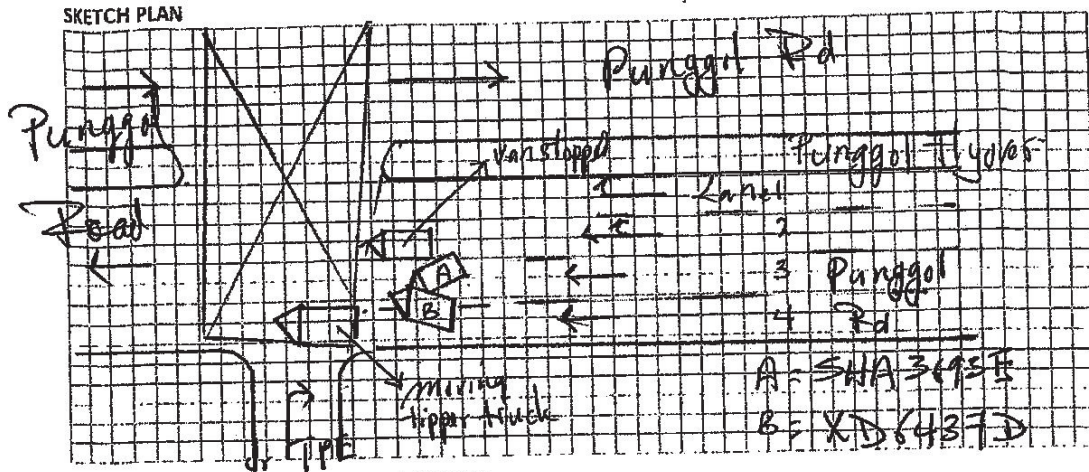 SKETCH PLAN
Punggol Rd
Punggol
Road
van stopped
Punggol Flyover
Lane 1
2
3 Punggol
4 Rd
A
B
moving
tipper truck
A = SHA 3693E
B = XD6437D